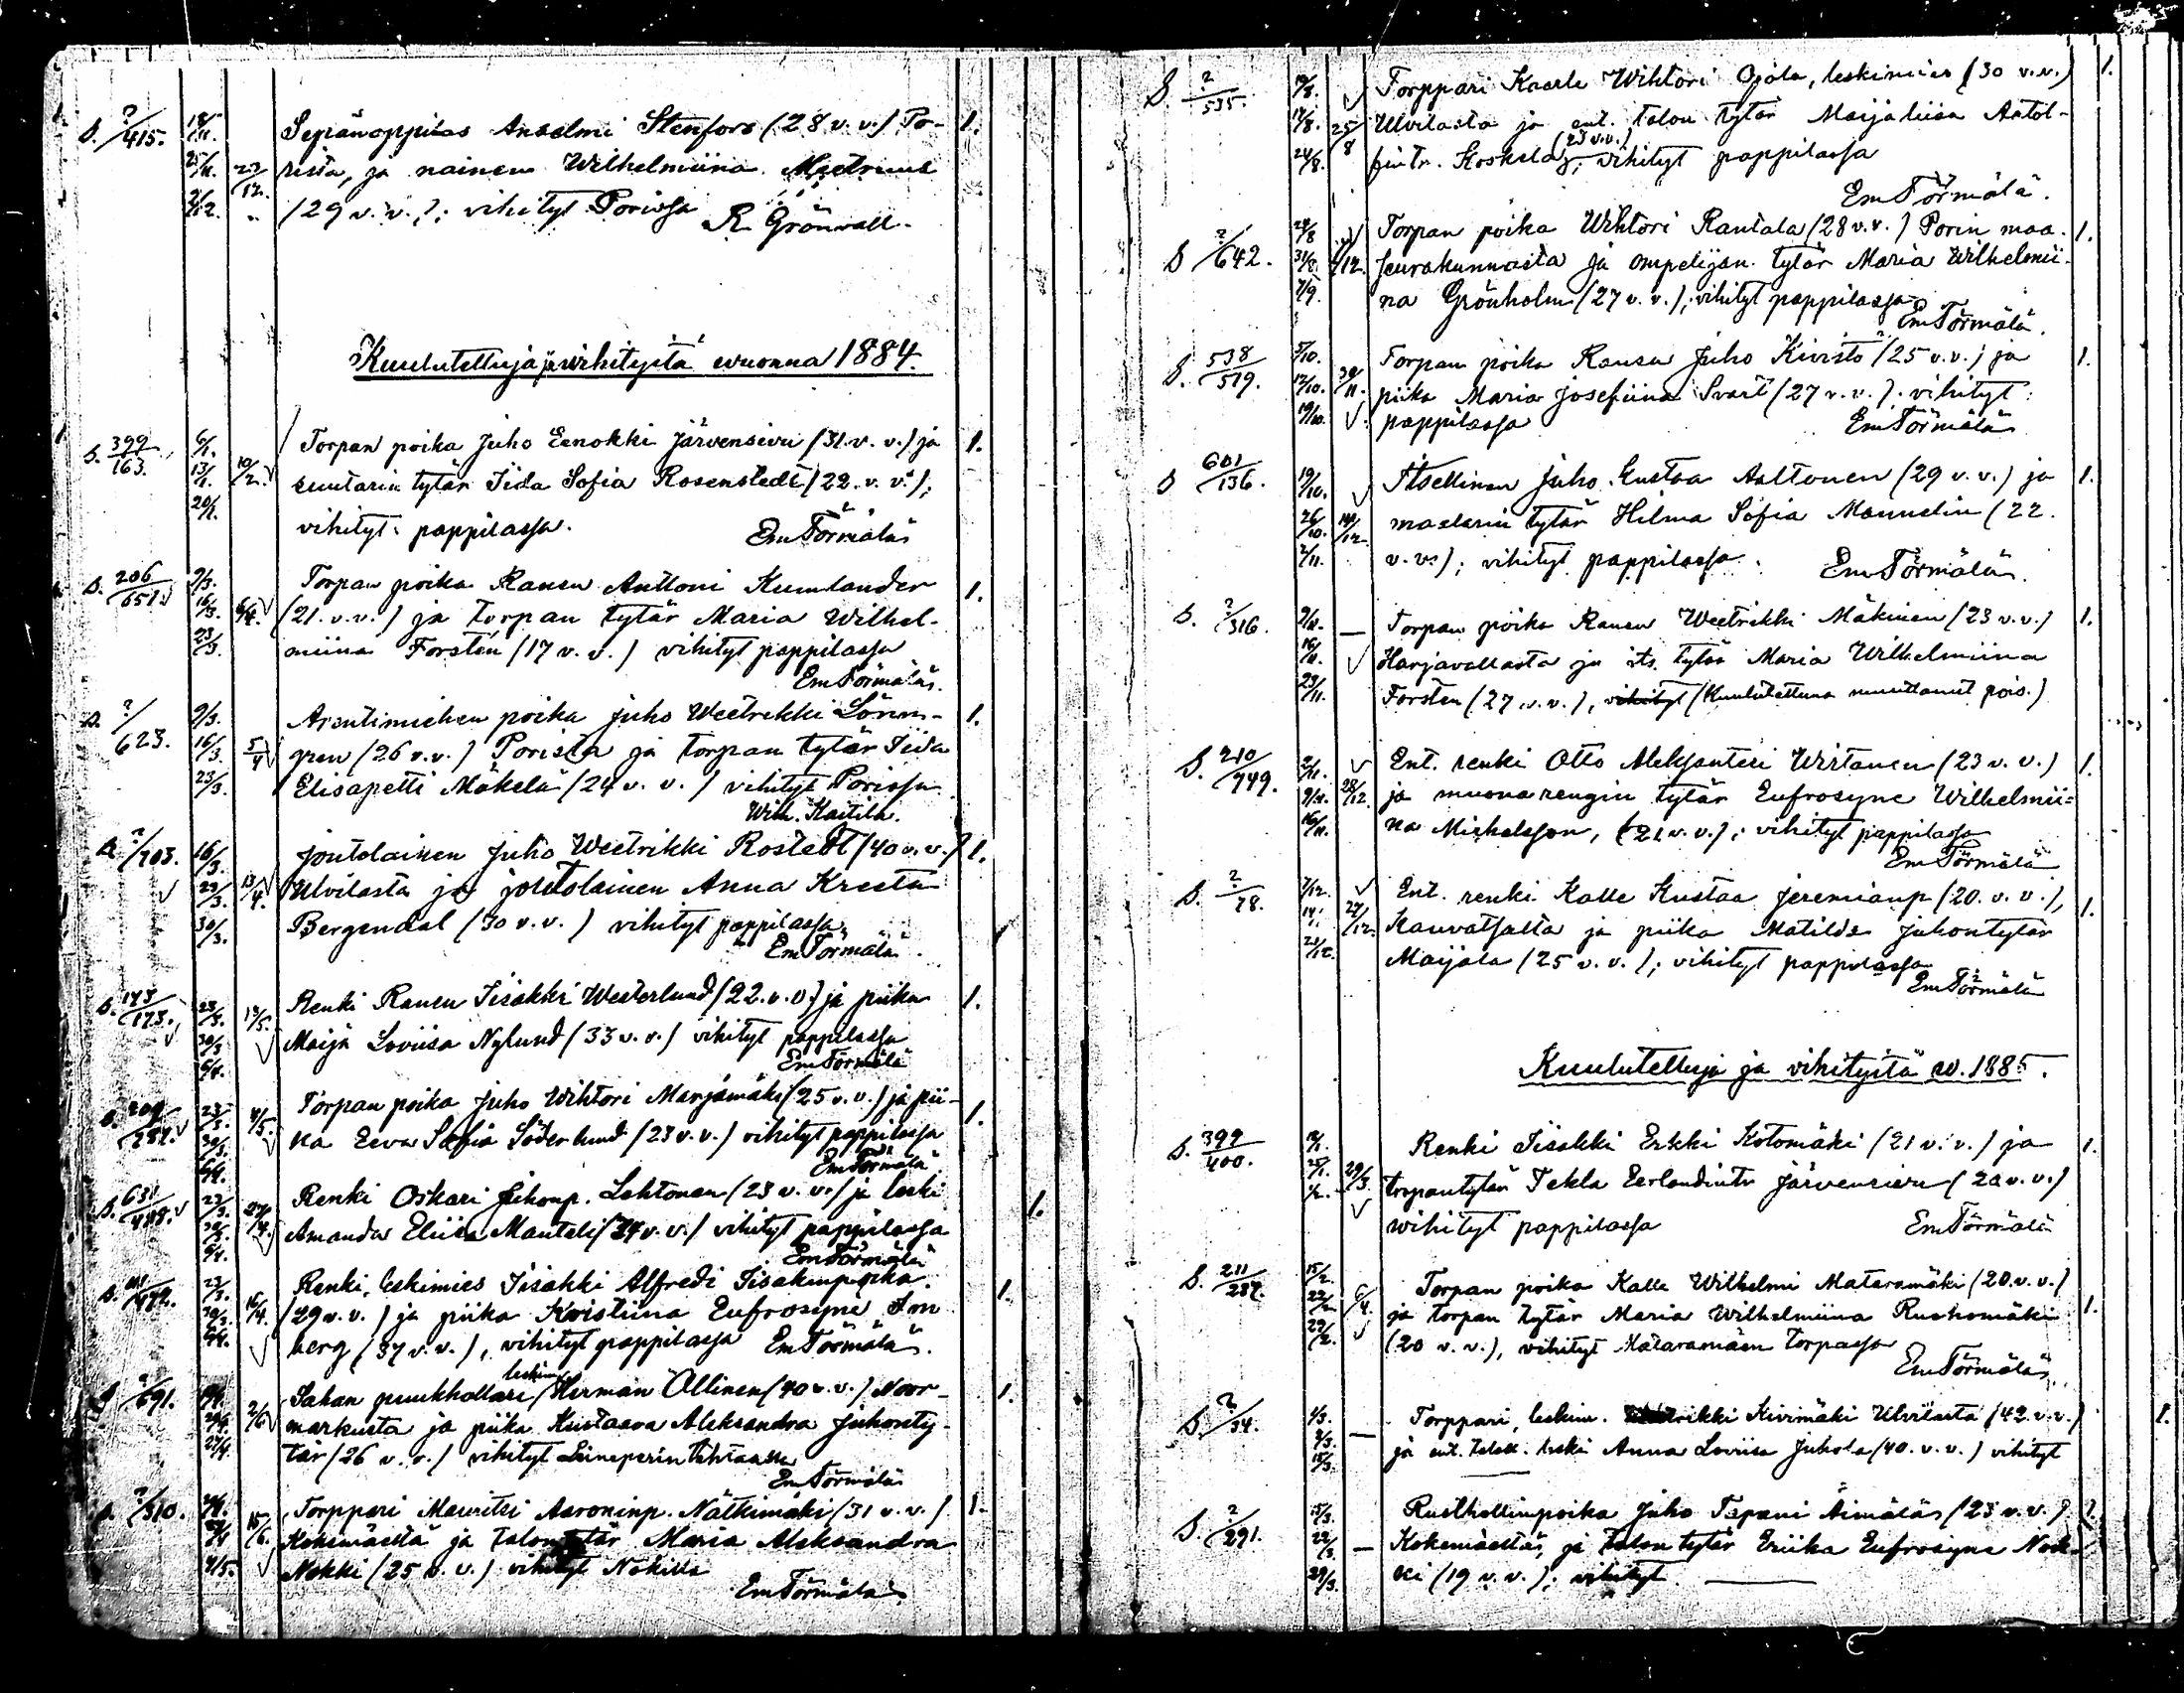 S. ?/415. 18/11. Sepänoppilas Anselmi Stenfors (28 v. v.) Po- 1.
25/11. 23/12. rista, ja nainen Wilhelmiina
2/12. (29 v. v.); vihityt Porissa R. Grönvall.
Kuulutettuja ja wihityitä wuonna 1884.
S. 399/163. 6/1. Torpan poika Juho Eenokki Järvensivu (31 v. v.) ja 1.
13/1. 10/2. suutarin tytär Iida Sofia Rosenstedt (22. v. v.);
20/1. vihityt pappilassa. Em Törmälä
S. 206/651. 9/3. Torpan poika Ransu Anttoni Kumlander 1.
16/3. 6/4. (21. v. v.) ja torpan tytär Maria Wilhel-
23/3. miina Forstén (17 v. v.) vihityt pappilassa
Em Törmälä.
S. ?/623. 9/3. Arentimiehen poika Juho Weetrikki Lönn- 1.
16/3. 5/4 gren (26 v. v.) Porista ja torpan tytär Iida
23/3. Elisapetti Mäkelä (24 v. v.) vihityt Porissa
Wilh. Kaitila.
S. ?/703. 16/3. Joutolainen Juho Weetrikki Rostedt (40 v. v.) 1.
23/3. 13/4. Ulvilasta ja joutolainen Anna Kreeta
30/3. Bergendal (30 v. v.) vihityt pappilassa
Em Törmälä.
S. 143/173. 23/3. 18/5. Renki Ransu Iisakki Westerlund (22. v. v.) ja piika 1.
30/3 Maija Loviisa Nylund (33 v. v.) vihityt pappilassa
6/4. Em Törmälä
S. 209/287. 23/3. 4/5. Torpan poika Juho Wihtori Marjamäki (25 v. v.) ja pii- 1.
30/3. ka Eeva Sofia Söderlund (23 v. v.) vihityt pappilassa
6/4. Em Törmälä.
S. 631/488. 23/3. 27/4. Renki Oskari Juhonp. Lehtonen (23 v. v.) ja leski 1.
30/3. Amanda Eliisa Manteli (24 v. v.) vihityt pappilassa
6/4. Em Törmälä
23/3. Renki, leskimies Iisakki Alfredi Iisakinpoika. 1.
30/3. 15/4. (29 v. v.) ja piika Kristiina Eufrosyne Lon
6/4. berg (37 v. v.), vihityt pappilassa Em Törmälä.
leskim.
S. ?/691. Sahan puukhollari Herman Ollinen (40 v. v.) Noor- 1.
2/6 markusta ja piika Kustaava Aleksandra Juhonty-
27/4. tär (26 v. v.) vihityt Leineperin tehtaassa
Em Törmälä
S. ?/310. Torppari Mauritsi Aaroninp. Nätkimäki (31 v. v.) 1.
15/6. Kokemäeltä ja talon tytär Maria Aleksandra
4/5. Nokki (25 v. v.) vihityt Nokilla
Em Törmälä
S. ?/535. 10/8. Torppari Kaarle Wihtori Ojala, leskimies (30 v. v.) 1.
17/8. 25/8 Ulvilasta ja ent. talon tytär Maija liisa Antol-
(23 v. v.)
24/8. fintr. Koskela; vihityt pappilassa
Em Törmälä.
S ?/642. 24/8 Torpan poika Wihtori Rantala (28 v. v.) Porin maa- 1.
31/8. seurakunnasta ja ompelijan tytär Maria Wilhelmii-
7/9. na Grönholm (27 v. v.); vihityt pappilassa
Em Törmälä.
S. 538/519. 5/10. Torpan poika Ransu Juho Kivistö (25 v. v.) ja 1.
12/10. 30/11. piika Maria Josefiina Svart (27 v. v.). vihityt
19/10. pappilassa Em Törmälä
S 601/136. 19/10. Itsellinen Juho Kustaa Aaltonen (29 v. v.) ja 1.
26/10. 14/12. maalarin tytär Hilma Sofia Mannelin (22.
2/11. v. v.); vihityt pappilassa. Em Törmälä.
S. ?/316. 9/11. — Torpan poika Ransu Weetrikki Mäkinen (23 v. v.) 1.
16/11. Harjavallasta ja its. tytär Maria Wilhelmiina
23/11. Forsten (27 v. v.), vihityt (Kuulutettuna muuttanut pois.)
S. 210/749. 2/11. Ent. renki Otto Aleksanteri Wirtanen (23 v. v.) 1.
9/11. 28/12. ja muonarengin tytär Eufrosyne Wilhelmii=
16/11. na Michelsson, (21 v. v.); vihityt pappilassa
Em Törmälä
S. ?/78. 7/12. Ent. renki Kalle Kustaa Jeremianp. (20. v. v.), 1.
14. 27/12. Kauvatsalta ja piika Matilda Juhontytär
21/12. Maijala (25 v. v.); vihityt pappilassa
Em Törmälä
Kuulutettuja ja vihityitä w. 1885.
S. 399/400. 18/1. Renki Iisakki Erkki Kotomäki (21 v. v.) ja 1.
25/1. 29/3. torpantytär Tekla Eerlandintr Järvensivu (20 v. v.)
1/2. wihityt pappilassa Em Törmälä
S. 211/287. 15/2. Torpan poika Kalle Wilhelmi Mataramäki (20. v. v.)
22/2. 6/4. ja torpan tytär Maria Wilhelmiina Ruohomäki 1.
29/2. (20 v. v.), vihityt Mataramäen torpassa
Em Törmälä
S. ?/34. 1/3. Torppari, leskim. Kivimäki Ulvilasta (42 v. v.) 1.
8/3. — ja ent. talok. leski Anna Loviisa Juhola (40. v. v.) vihityt
15/3.
S. ?/291. 15/3. Rusthollinpoika Juho Tapani Äimälä (23 v. v.) 1.
22/3. — Kokemäeltä, ja talon tytär Eriika Eufrosyne Nok-
29/3. ki (19 v. v.); vihityt.